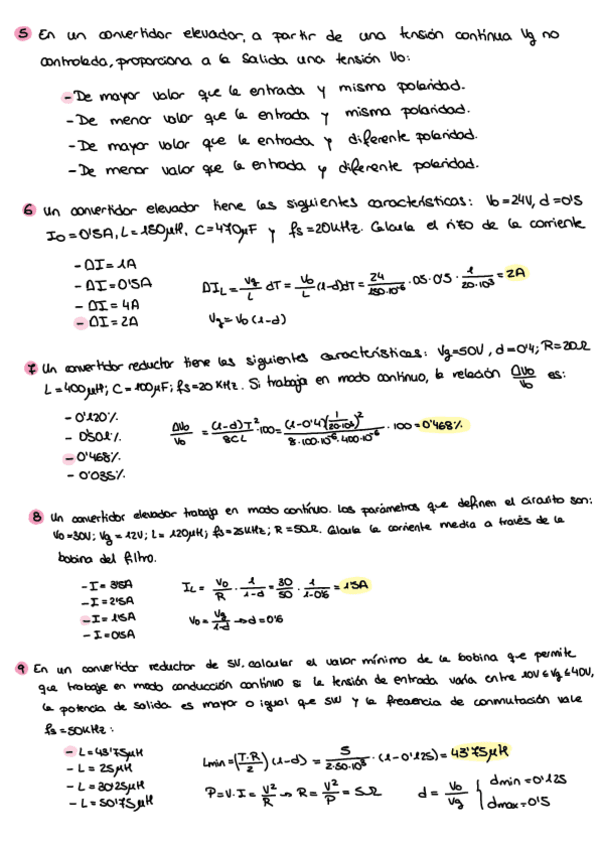 5 En un convertidor elevador, a partir de una tensión continua Vg no
controlada, proporciona a la salida una tensión Vo:
- De mayor valor que la entrada y misma polaridad.
- De menor valor que la entrada y misma polaridad.
- De mayor valor que la entrada y diferente polaridad.
- De menor valor que la entrada y diferente polaridad.
6 Un convertidor elevador tiene las siguientes características: Vo=24V, d=0'5
Io=0'5A, L=150μH, C=470μF y fs=20kHz. Calcula el rizo de la corriente
- ΔI=1A
- ΔI=0'5A
- ΔI=4A
- ΔI=2A
ΔIL = Vg/L dT = Vo/L (1-d)dT = 24/150·10⁻⁶ ·0.5·0'5· 1/20·10³ = 2A
Vg = Vo(1-d)
7 Un convertidor reductor tiene las siguientes características: Vg=50V, d=0'4; R=20Ω
L=400μH; C=100μF; fs=20KHz. Si trabaja en modo continuo, la relación ΔVo/Vo es:
- 0'120%
- 0'501%
- 0'468%
- 0'035%
ΔVo/Vo = (1-d)T²/8CL ·100 = (1-0'4)(1/20·10³)²/8·100·10⁻⁶·400·10⁻⁶ ·100 = 0'468%
8 Un convertidor elevador trabaja en modo contínuo. Los parámetros que definen el circuito son:
Vo=30V; Vg=12V; L=120μH; fs=25kHz; R=50Ω. Calcula la corriente media a través de la
bobina del filtro.
- I=3'5A
- I=2'5A
- I=1'5A
- I=0'5A
IL = Vo/R · 1/1-d = 30/50 · 1/1-0'6 = 1'5A
Vo = Vg/1-d → d=0'6
9 En un convertidor reductor de 5V. calcular el valor mínimo de la bobina que permite
que trabaje en modo conducción continuo si la tensión de entrada varía entre 10V≤Vg≤40V,
la potencia de salida es mayor o igual que 5W y la frecuencia de conmutación vale
fs=50kHz:
- L=43'75μH
- L=25μH
- L=30'25μH
- L=50'75μH
Lmin = (T·R/2)(1-d) = 5/2·50·10³ ·(1-0'125) = 43'75μH
P=V·I = V²/R → R = V²/P = 5Ω
d = Vo/Vg { dmin=0'125
dmax=0'5